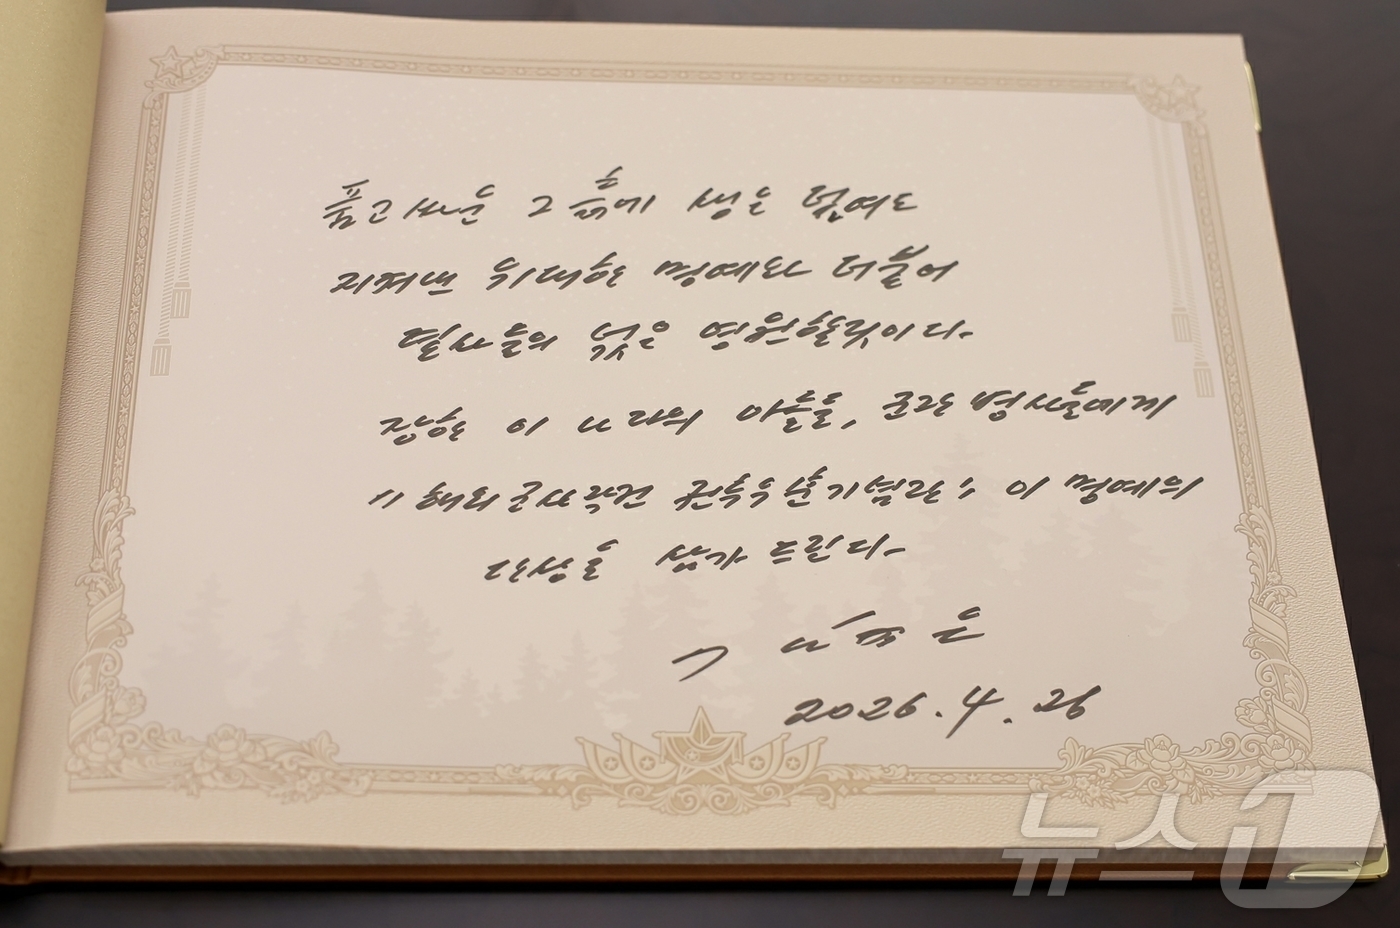 품고 싸운 그 흙에 생은 덮여도
지켜낸 위대한 명예와 더불어
렬사들의 넋은 영원할것이다.
장한 이 나라의 아들들, 군관, 병사들에게
"해외군사작전 전투위훈기념관", 이 명예의
단상을 삼가 드린다.
김정은
2026. 4. 26
뉴스1